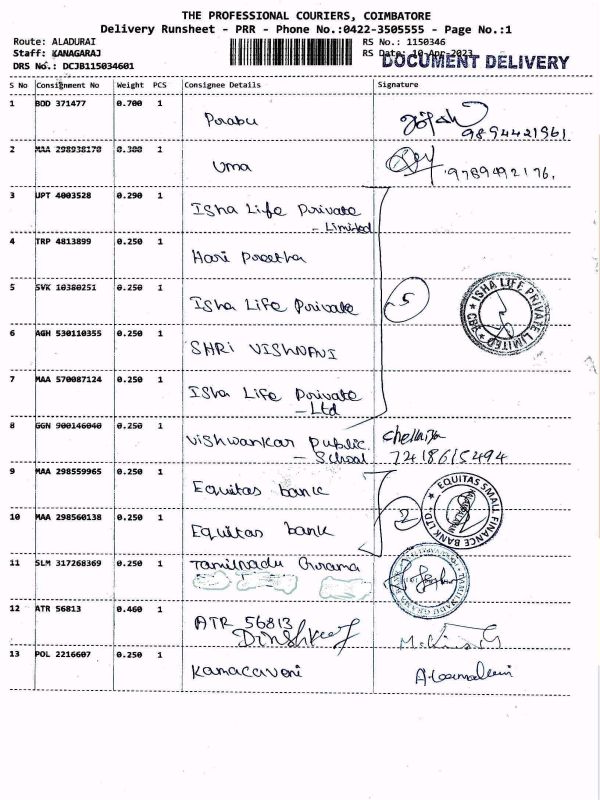 THE PROFESSIONAL COURIERS, COIMBATORE
Delivery Runsheet - PRR - Phone No.:0422-3505555 - Page No.:1
Route: ALADURAI
RS No.: 1150346
Staff: KANAGARAJ
RS Date: 10-Apr-2023
DRS No.: DCJB115034601
DOCUMENT DELIVERY
S No Consignment No Weight PCS Consignee Details Signature
1 BOD 371477 0.700 1 Prabu
9894421961
2 MAA 298938170 0.300 1 Uma
9789492176.
3 UPT 4003528 0.290 1 Isha Life Private
- Limited
4 TRP 4813899 0.250 1 Hari Preetha
5 SVK 10380251 0.250 1 Isha Life Private
5
ISHA LIFE PRIVATE LIMITED
CBE
6 AGH 530110355 0.250 1 SHRI VISHNAVI
7 MAA 570087124 0.250 1 Isha Life Private
- Ltd
8 GGN 900146040 0.250 1 Vishwankar Public
- School
7418615494
9 MAA 298559965 0.250 1 Equitas bank
EQUITAS SMALL FINANCE BANK LTD.
2
10 MAA 298560138 0.250 1 Equitas bank
11 SLM 317268369 0.250 1 Tamilnadu Grama
12 ATR 56813 0.460 1 ATR 56813
13 POL 2216607 0.250 1